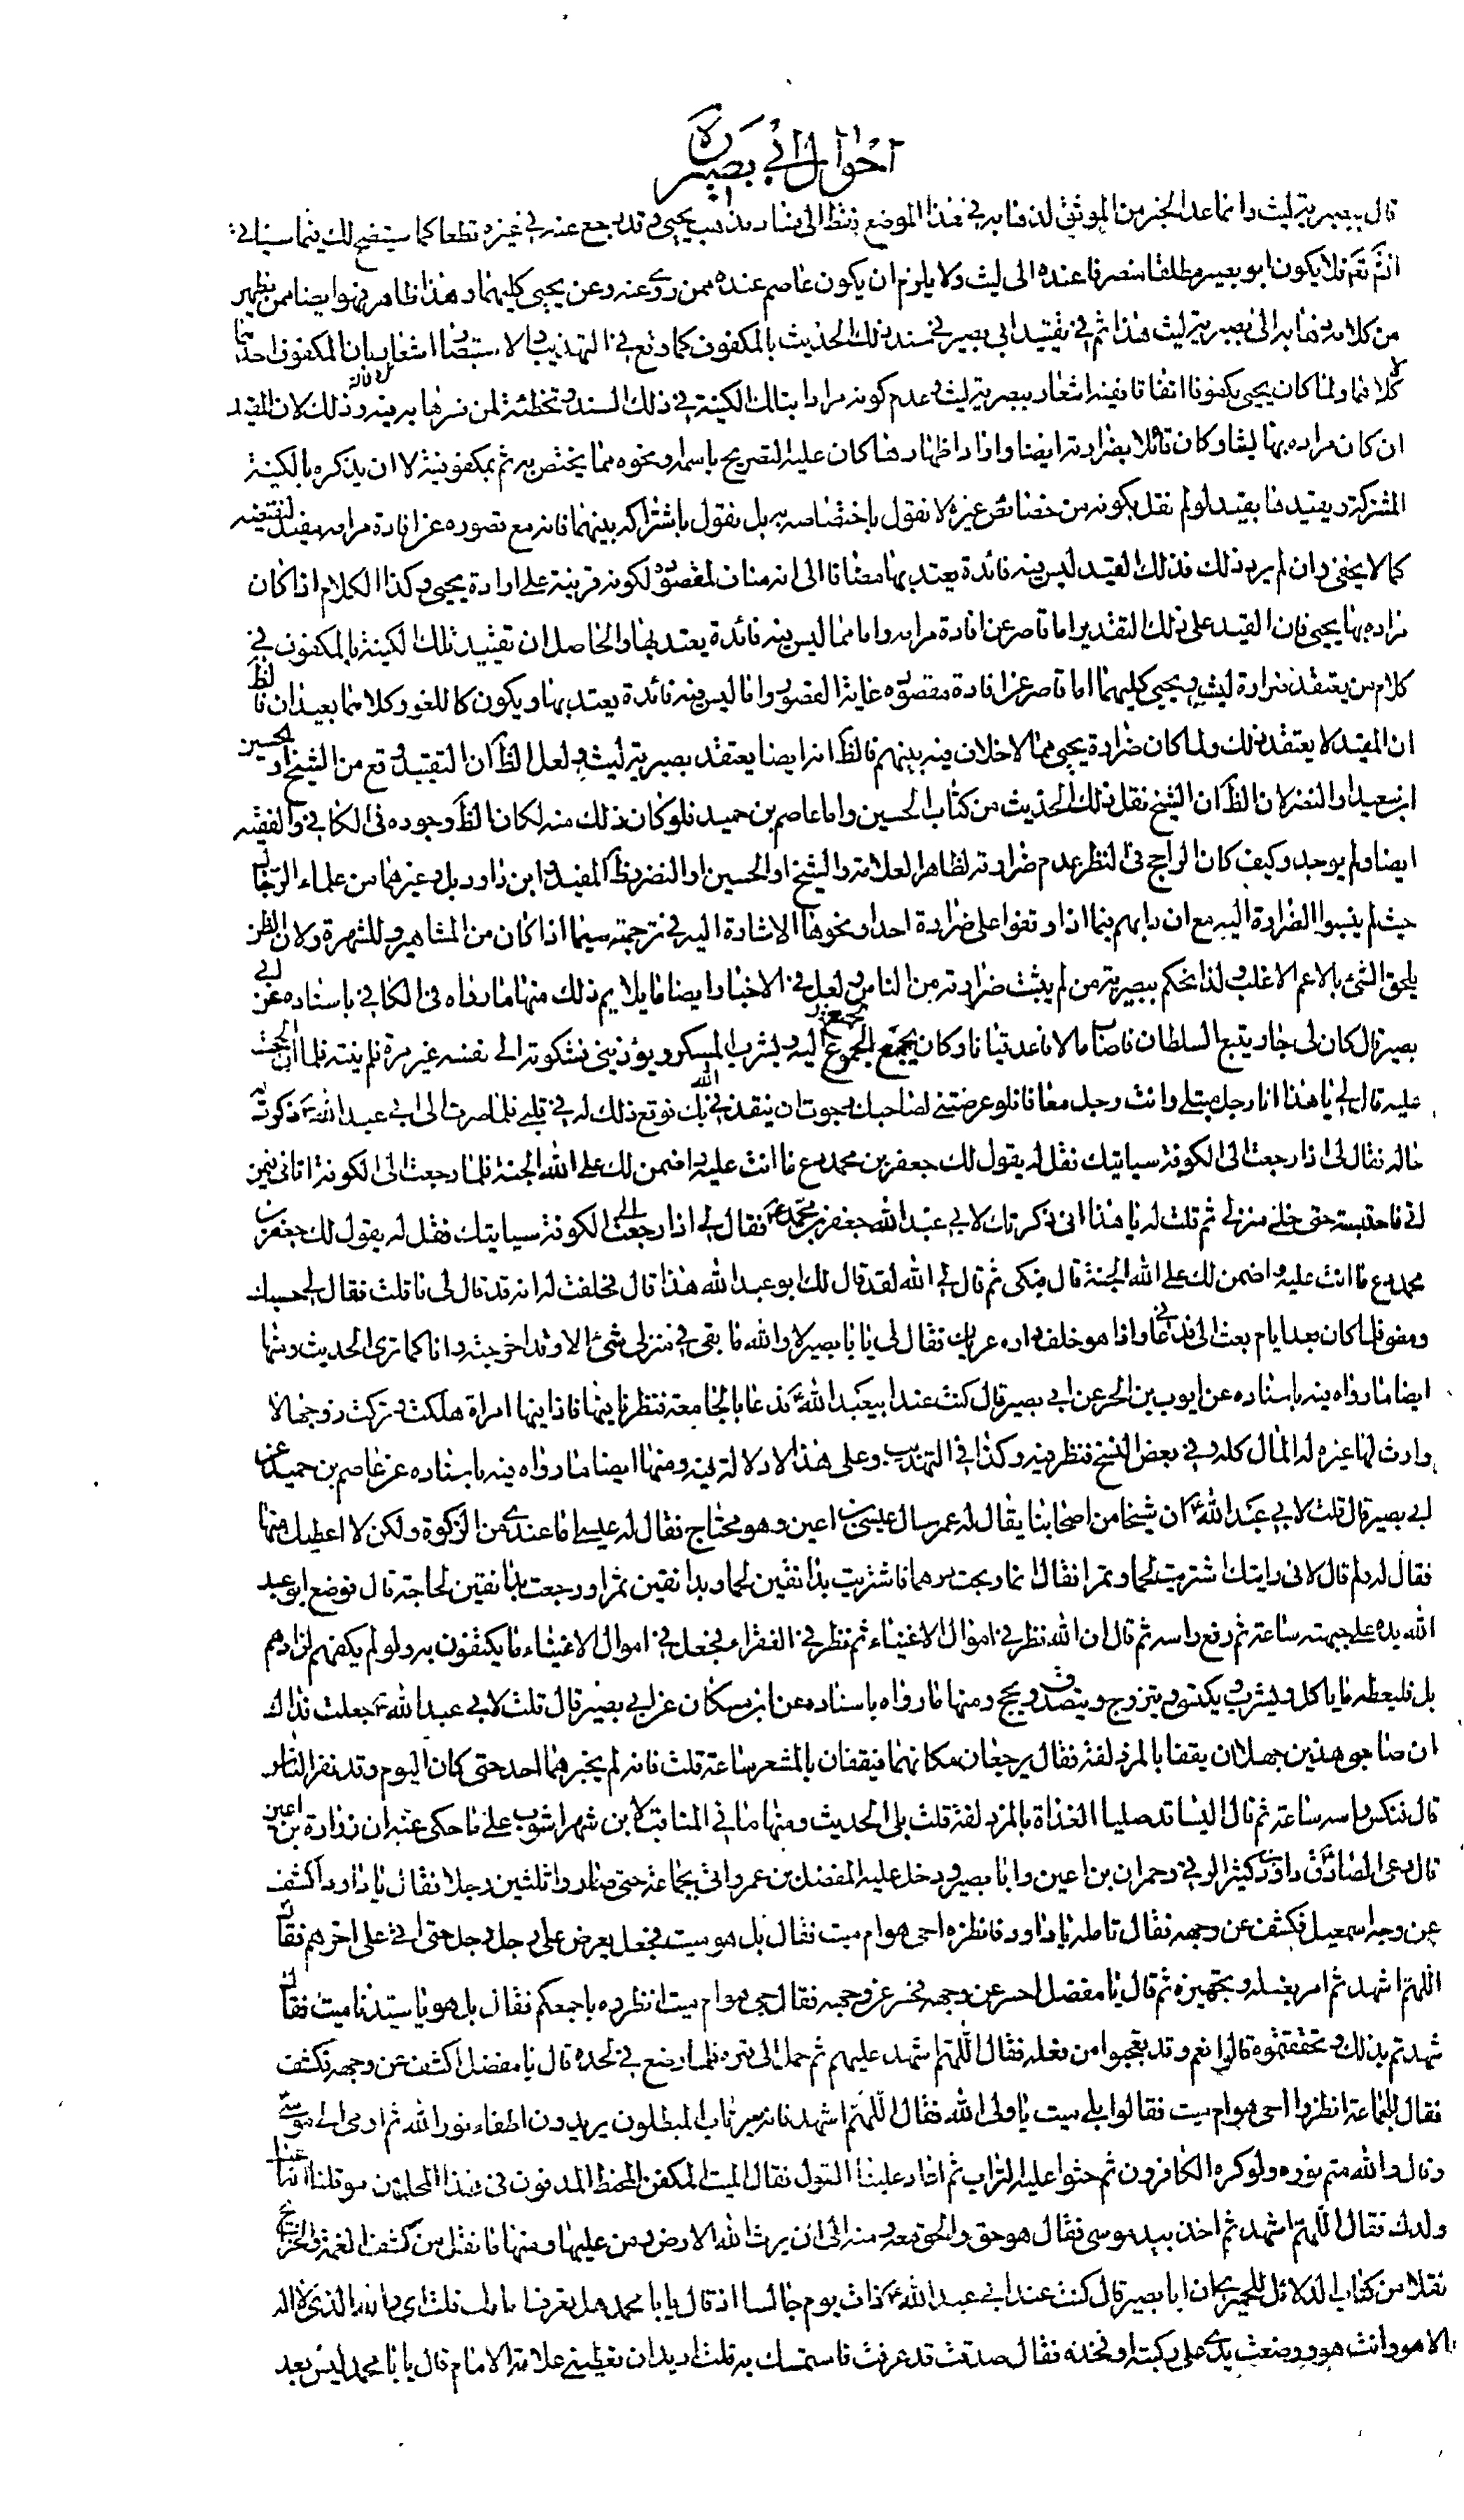 احوال ابي بصير
قال ببصيرية ليث وانما عد الخبر من الموثق لذهابه في هذا الموضع نظرا الى فساد مذهب يحيى وقد رجع عنه في غيره قطعا كما سيتضح لك فيما سياتي
انتم نعم فلا يكون ابو بصير مطلقا منصرفا عنده الى ليث ولا يلزم ان يكون عاصم عنده ممن روى عنه وعن يحيى كليهما وهذا ظاهر فهو ايضا ممن يظهر
من كلامه ذهابه الى بصيرية ليث هذا ثم في تقييد ابي بصير في سند ذلك الحديث بالمكفوف كما وقع في التهذيب والاستبصار اشعار بان المكفوف احدهما
لا كلاهما ولما كان يحيى مكفوفا اتفاقا ففيه اشعار ببصيرية ليث وعدم كونه مرادا بتلك الكنية في ذلك السند وتخطئة لمن فسرها به وذلك لان المقيد
ان كان مراده بها ليثا وكان قائلا بضرارته ايضا واذا اراد اظهارها كان عليه التصريح باسمه ونحوه مما يختص به ثم بمكفوفيته لا ان يذكره بالكنية
المشتركة ويقيدها بقيد لو لم نقل بكونه من خصائص غيره لا نقول باختصاصه به بل نقول باشتراكه بينهما فانه مع قصوره عن افادة مرامه مفيد لنقيضه
كما لا يخفى وان لم يرد ذلك فذلك القيد ليس فيه فائدة يعتد بها مضافا الى انه مناف لمقصوده لكونه قرينة على ارادة يحيى وكذا الكلام اذا كان
مراده بها يحيى فان القيد على ذلك التقدير اما قاصر عن افادة مرامه واما مما ليس فيه فائدة يعتد بها والحاصل ان تقييد تلك الكنية بالمكفوف في
كلام من يعتقد ضرارة ليث ويحيى كليهما اما قاصر عن افادة مقصوده غاية القصور واما ليس فيه فائدة يعتد بها ويكون كاللغو وكلاهما بعيدان فالظ
ان المقيد لا يعتقد ذلك ولما كان ضرارة يحيى مما لا خلاف فيه بينهم فالظ انه ايضا يعتقد بصيرية ليث ولعل الظ ان التقييد وقع من الشيخ او الحسين
ابن سعيد او النضر لان الظ ان الشيخ نقل ذلك الحديث من كتاب الحسين واما عاصم بن حميد فلو كان ذلك منه لكان الظ وجوده في الكافي والفقيه
ايضا ولم يوجد وكيف كان الراجح في النظر عدم ضرارته لظاهر العلامة والشيخ او الحسين او النضر وظ المفيد وابن داود بل وغيرهما من علماء الرجال
حيث لم ينسبوا الضرارة اليه مع ان دابهم فيما اذا وقفوا على ضرارة احد او نحوها الاشارة اليه في ترجمته سيما اذا كان من المشاهير وللشهرة ولان الظن
يلحق الشئ بالاعم الاغلب ولذا يحكم ببصيرية من لم يثبت ضرارته من الناس ولعل في الاخبار ايضا ما يلايم ذلك منها ما رواه في الكافي باسناده عن ابي
بصير قال كان لي جار يتبع السلطان فاصاب مالا فاعد قيانا وكان يجمع الجموع اليه ويشرب المسكر ويؤذيني فشكوته الى نفسه غير مرة فلم ينته فلما الححت
عليه قال لي يا هذا انا رجل مبتلى وانت رجل معافا فلو عرضتني لصاحبك رجوت ان ينقذني الله بك فوقع ذلك له في قلبي فلما صرت الى ابي عبد الله ع ذكرت له
حاله فقال لي اذا رجعت الى الكوفة سياتيك فقل له يقول لك جعفر بن محمد دع ما انت عليه واضمن لك على الله الجنة فلما رجعت الى الكوفة اتاني فيمن
اتى فاحتبسته حتى خلى منزلي ثم قلت له يا هذا اني ذكرتك لابي عبد الله جعفر بن محمد ع فقال لي اذا رجعت الى الكوفة سياتيك فقل له يقول لك جعفر بن
محمد دع ما انت عليه واضمن لك على الله الجنة قال فبكى ثم قال لي الله لقد قال لك ابو عبد الله هذا قال فحلفت له انه قد قال لي ما قلت فقال لي حسبك
ومضى فلما كان بعد ايام بعث الي فدعاني واذا هو خلف داره عريان فقال لي يا ابا بصير لا والله ما بقي في منزلي شئ الا وقد اخرجته وانا كما ترى الحديث ومنها
ايضا ما رواه فيه باسناده عن ايوب بن الحر عن ابي بصير قال كنت عند ابي عبد الله ع فدعا بالجامعة فنظر فيها فاذا فيها امراة هلكت وتركت زوجها لا
وارث لها غيره له المال كله وفي بعض النسخ فنظر فيه وكذا في التهذيب وعلى هذا لا دلالة فيه ومنها ايضا ما رواه فيه باسناده عن عاصم بن حميد عن
ابي بصير قال قلت لابي عبد الله ع ان شيخا من اصحابنا يقال له عمر سال عيسى بن اعين وهو محتاج فقال له عيسى اما عندي من الزكوة ولكن لا اعطيك منها
فقال له ولم قال لاني رايتك اشتريت لحما وتمرا فقال انما ربحت درهما فاشتريت بدانقين لحما وبدانقين تمرا ورجعت بدانقين لحاجة قال فوضع ابو عبد
الله يده على جبهته ساعة ثم رفع راسه ثم قال ان الله نظر في اموال الاغنياء ثم نظر في الفقراء فجعل في اموال الاغنياء ما يكتفون به ولو لم يكفهم لزادهم
بل فليعطه ما ياكل ويشرب ويكتسي ويتزوج ويتصدق ويحج ومنها ما رواه باسناده عن ابن مسكان عن ابي بصير قال قلت لابي عبد الله ع جعلت فداك
ان صاحبي هذين جهلا ان يقفا بالمزدلفة فقال يرجعان مكانهما فيقفان بالمشعر ساعة قلت فانه لم يخبرهما احد حتى كان اليوم وقد نفر الناس
قال فنكس راسه ساعة ثم قال اليسا قد صليا الغداة بالمزدلفة قلت بلى الحديث ومنها ما في المناقب لابن شهراشوب على ما حكى عنه ان زرارة بن اعين
قال دعى الصادق ع داود بن كثير الرقي وحمران بن اعين وابا بصير ودخل عليه المفضل بن عمر واتى بجماعة حتى صاروا ثلثين رجلا فقال يا داود اكشف
عن وجه اسمعيل فكشف عن وجهه فقال تامله يا داود فانظره احي هو ام ميت فقال بل هو ميت فجعل يعرض على رجل رجل حتى اتى على اخرهم فقال
اللهم اشهد ثم امر بغسله وتجهيزه ثم قال يا مفضل احسر عن وجهه فحسر عن وجهه فقال حي هو ام ميت انظروه باجمعكم فقال بل هو يا سيدنا ميت فقال
شهدتم بذلك وتحققتموه قالوا نعم وقد تعجبوا من فعله فقال اللهم اشهد عليهم ثم حمل الى قبره فلما وضع في لحده قال يا مفضل اكشف عن وجهه فكشف
فقال للجماعة انظروا احي هو ام ميت فقالوا بلى ميت يا ولي الله فقال اللهم اشهد فانه سيرتاب المبطلون يريدون اطفاء نور الله ثم اومى الى موسى
وقال والله متم نوره ولو كره الكافرون ثم حثوا عليه التراب ثم اعاد علينا القول فقال الميت المكفن المحنط المدفون في هذا اللحد من هو قلنا اسمعيل
ولدك فقال اللهم اشهد ثم اخذ بيد موسى فقال هو حق والحق معه ومنه الى ان يرث الله الارض ومن عليها ومنها ما نقل من كشف الغمة والخرايج
نقلا من كتاب الدلائل للحميري ان ابا بصير قال كنت عند ابي عبد الله ع ذات يوم جالسا اذ قال يا ابا محمد هل تعرف امامك قلت اي والله الذي لا اله
الا هو وانت هو ووضعت يدي على ركبته او فخذه فقال صدقت قد عرفت فاستمسك به قلت اريد ان تعطيني علامة الامام قال يا ابا محمد ليس بعد